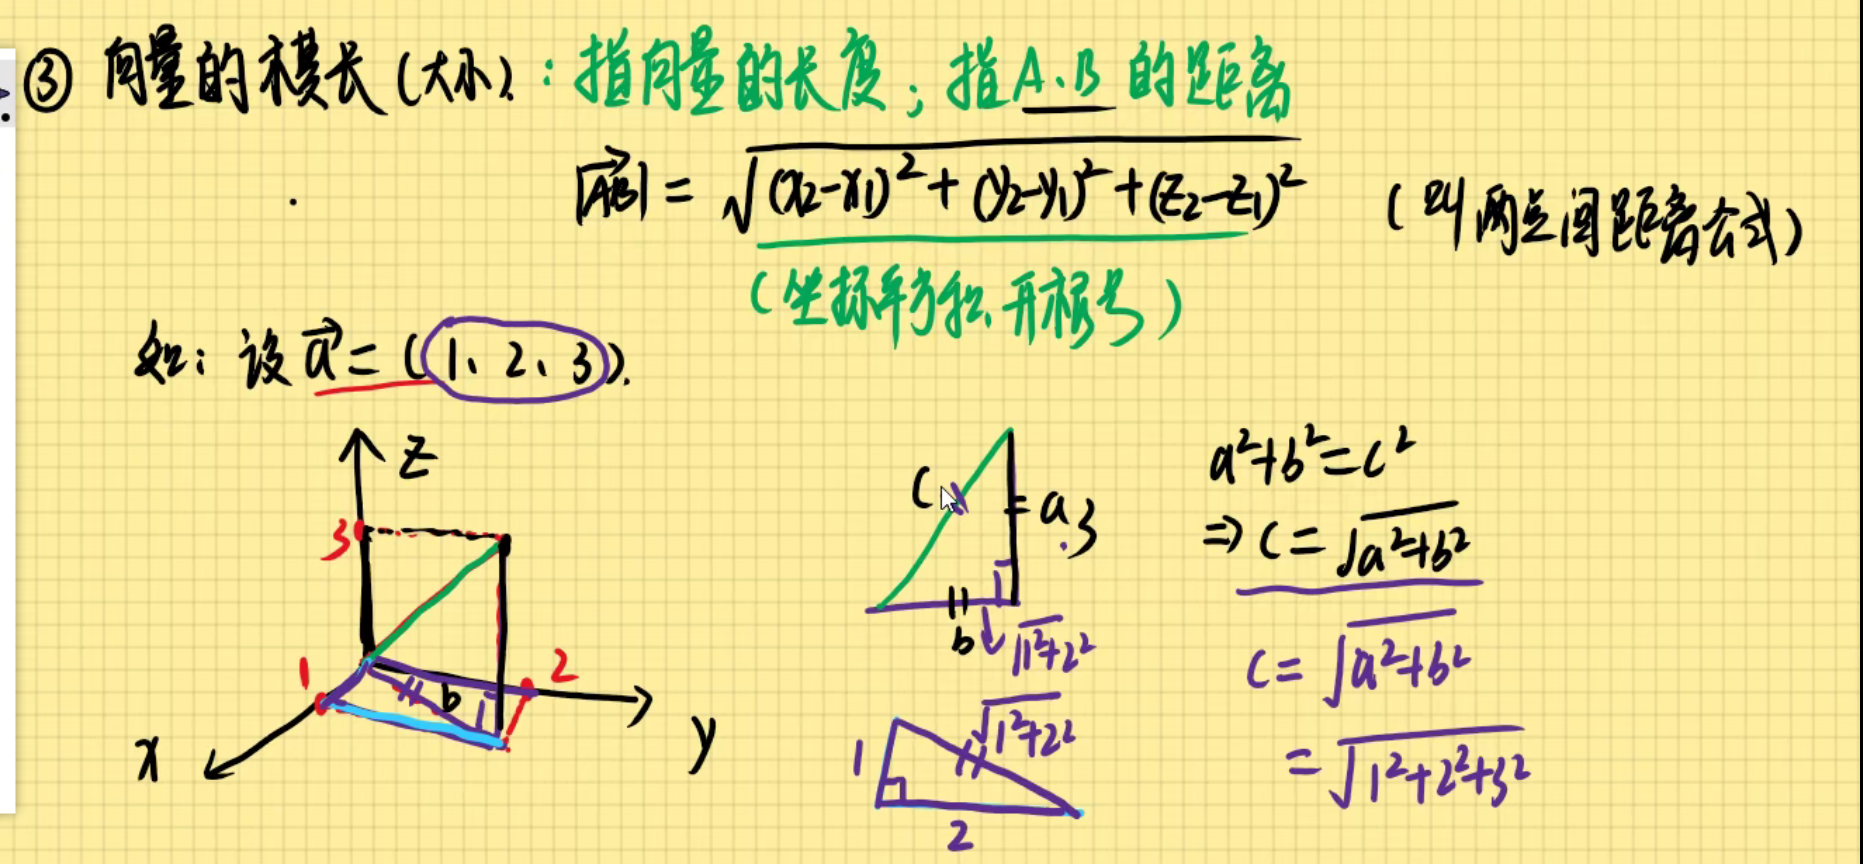 ③ 向量的模长(大小):指向量的长度;指A、B的距离
|AB| = √(x₂-x₁)²+(y₂-y₁)²+(z₂-z₁)² (叫两点间距离公式)
(坐标平方和、开根号)
如:设a=(1、2、3).
z
3
1
2
b
x
y
c
a
3
b
√1²+2²
1
√1²+2²
2
a²+b²=c²
⇒ c=√a²+b²
c=√a²+b²
=√1²+2²+3²